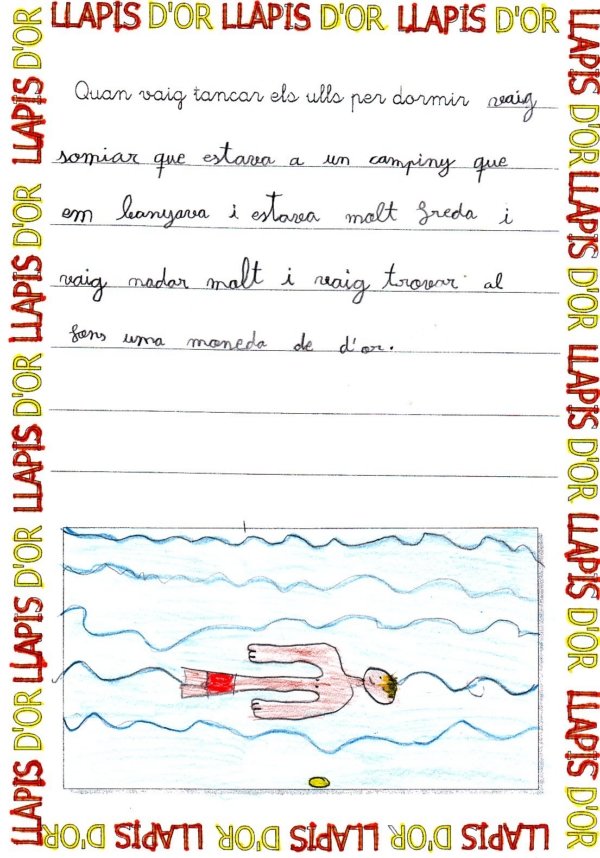 LLAPIS D'OR LLAPIS D'OR LLAPIS D'OR
Quan vaig tancar els ulls per dormir vaig
somiar que estava a un campiny que
em banyava i estava molt freda i
vaig nadar molt i vaig trovar al
fons una moneda de d'or.
LLAPIS D'OR LLAPIS D'OR LLAPIS D'OR LLAPIS D'OR LLAPIS D'OR
LLAPIS D'OR LLAPIS D'OR LLAPIS D'OR
LLAPIS D'OR LLAPIS D'OR LLAPIS D'OR LLAPIS D'OR LLAPIS D'OR